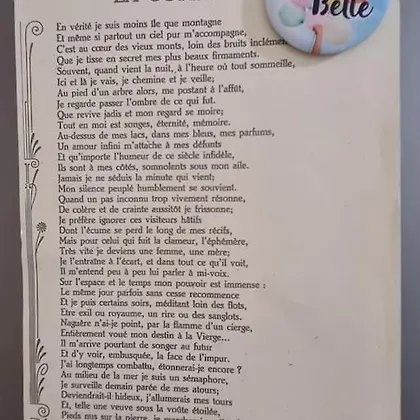 Belle
En vérité je suis moins île que montagne
Et même si partout un ciel pur m'accompagne,
C'est au cœur des vieux monts, loin des bruits
Que je tisse en secret mes plus beaux firmaments.
Souvent, quand vient la nuit, à l'heure où tout sommeille,
Ici et là je vais, je chemine et je veille;
Au pied d'un arbre alors, me postant à l'affût,
Je regarde passer l'ombre de ce qui fut.
Que revive jadis et mon regard se moire;
Tout en moi est songes, éternité, mémoire.
Au-dessus de mes lacs, dans mes bleus, mes parfums,
Un amour infini m'attache à mes défunts
Et qu'importe l'humeur de ce siècle infidèle,
Ils sont à mes côtés, somnolents sous mon aile.
Jamais je ne séduis la minute qui vient;
Mon silence peuplé humblement se souvient.
Quand un pas inconnu trop vivement résonne,
De colère et de crainte aussitôt je frissonne;
Je préfère ignorer ces visiteurs hâtifs
Dont l'écume se perd le long de mes récifs,
Mais pour celui qui fuit la clameur, l'éphémère,
Très vite je deviens une femme, une mère;
Je l'entraîne à l'écart, et dans tout ce qu'il voit,
Il m'entend peu à peu lui parler à mi-voix.
Sur l'espace et le temps mon pouvoir est immense :
Le même jour parfois sans cesse recommence
Et je puis certains soirs, méditant loin des flots,
Etre exil ou royaume, un rire ou des sanglots.
Naguère n'ai-je point, par la flamme d'un cierge,
Entièrement voué mon destin à la Vierge...
Il m'arrive pourtant de songer au futur
Et d'y voir, embusquée, la face de l'impur.
J'ai longtemps combattu, étonnerai-je encore ?
Au milieu de la mer je suis un sémaphore,
Je surveille demain parée de mes atours;
Deviendrait-il hideux, j'allumerais mes tours
Et, telle une veuve sous la voûte étoilée,
Pieds nus sur la pierre, je